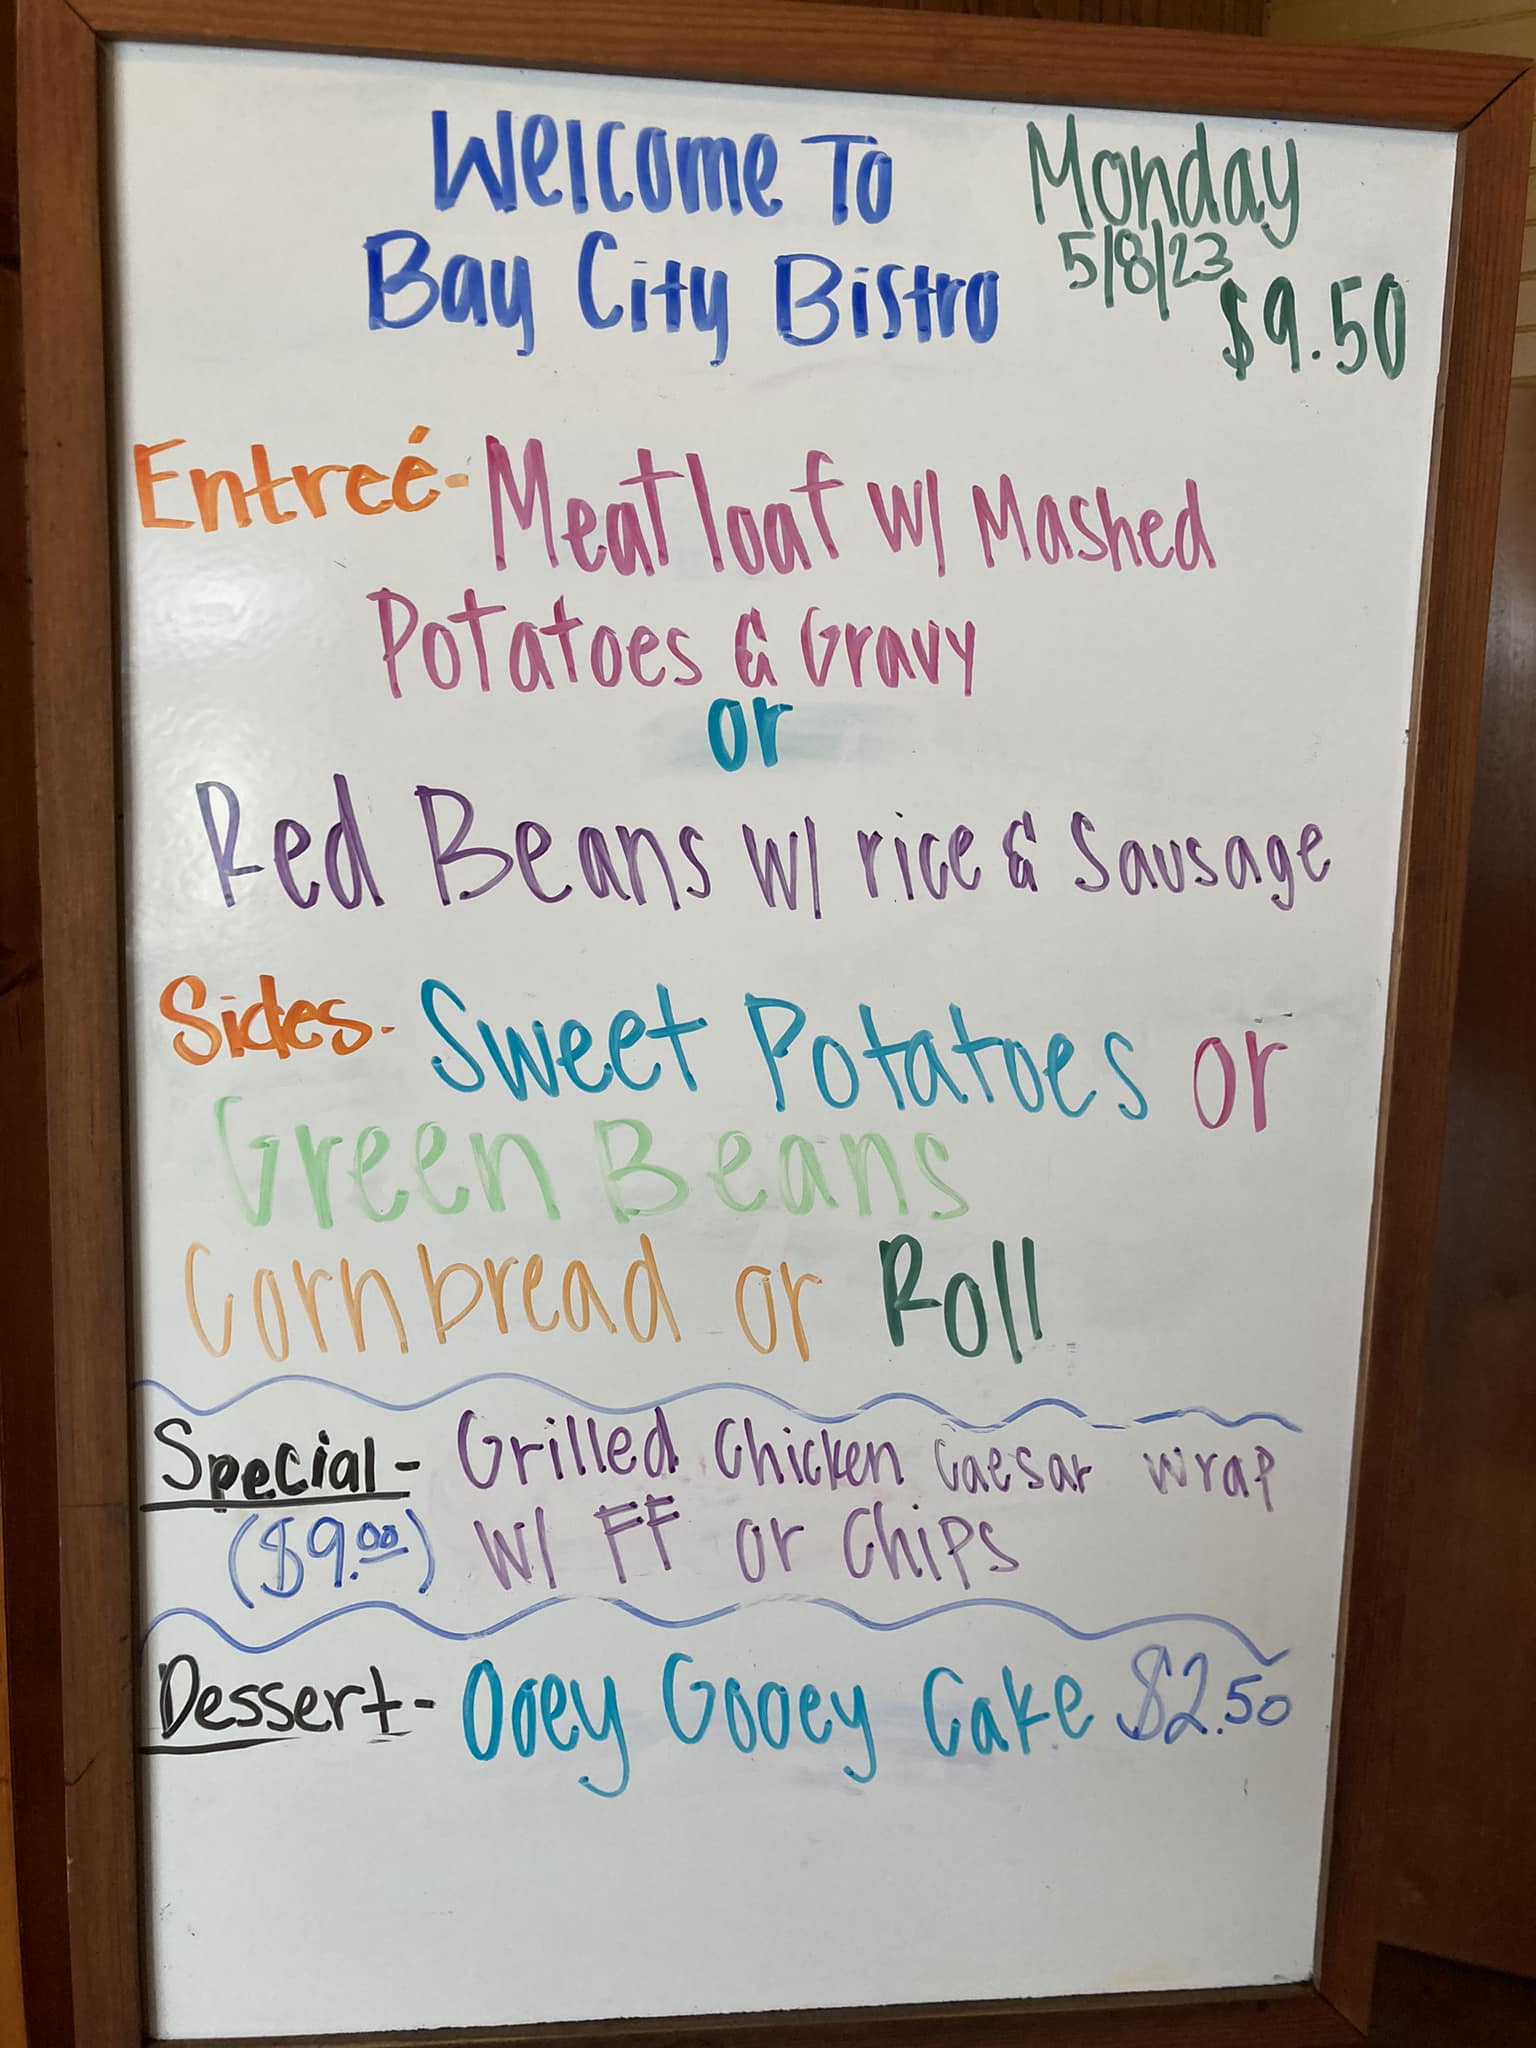 Welcome To
Bay City Bistro
Monday
5/8/23
$9.50
Entreé- Meatloaf w/ Mashed
Potatoes & Gravy
or
Red Beans w/ rice & Sausage
Sides- Sweet Potatoes or
Green Beans
Cornbread or Roll
Special- Grilled Chicken Caesar wrap
($9.00) w/ FF or Chips
Dessert- Ooey Gooey Cake $2.50